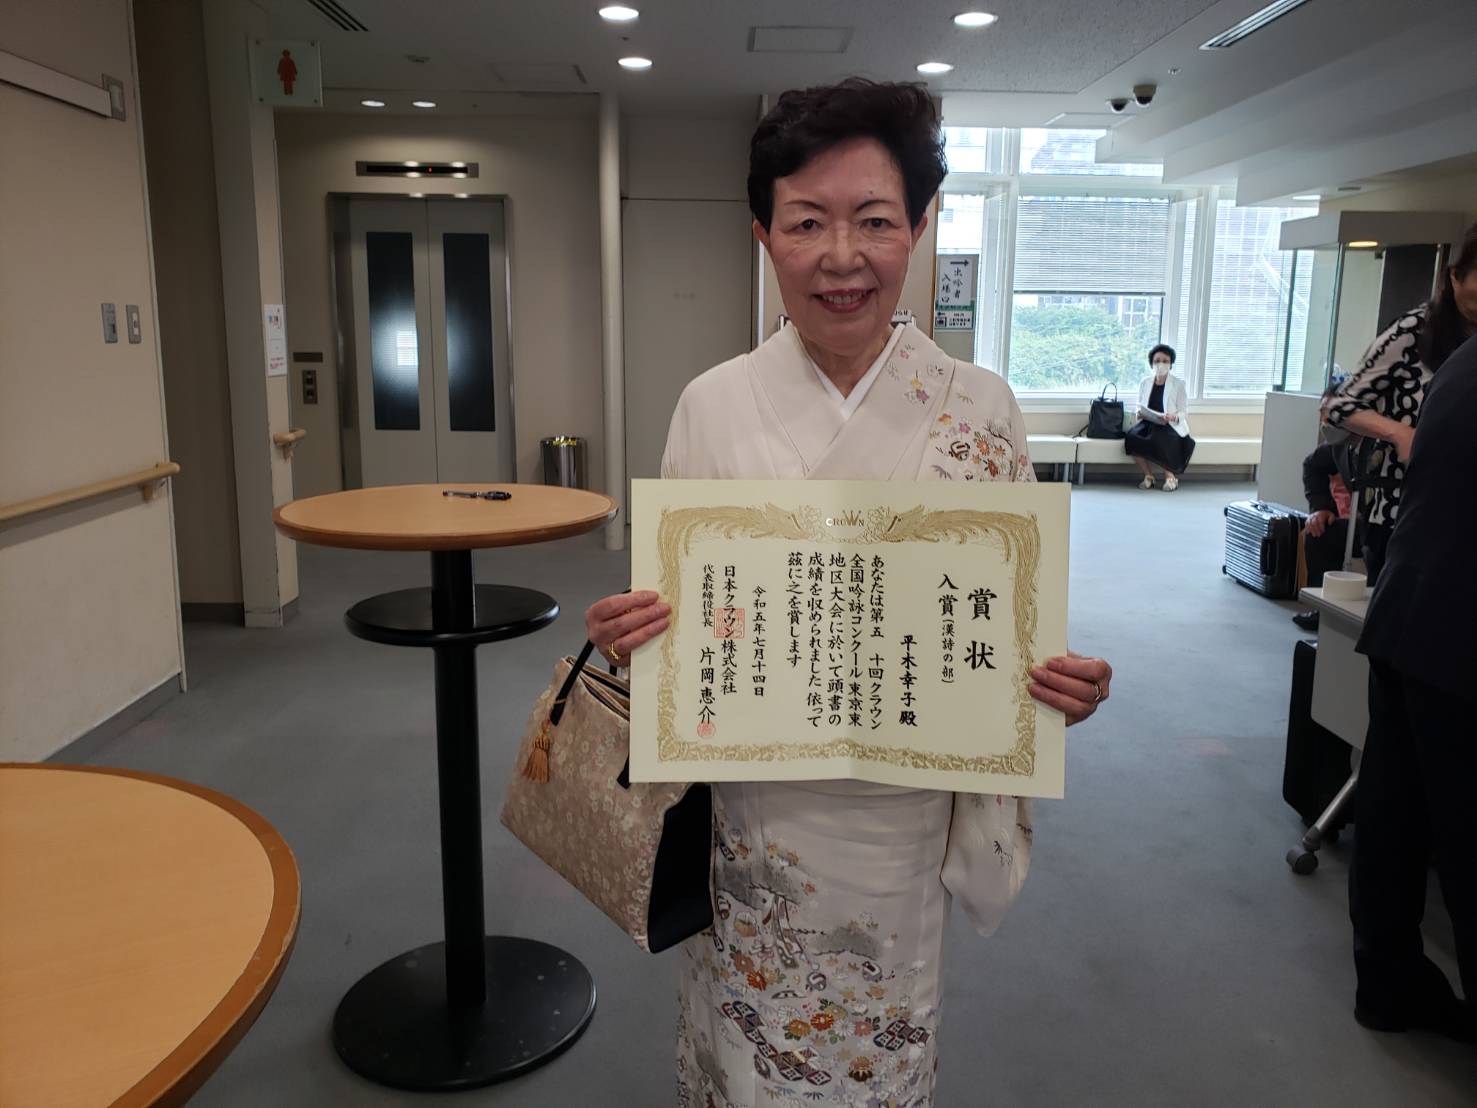 CROWN
賞状
入賞(漢詩の部)
平木幸子殿
あなたは第五十回クラウン
全国吟詠コンクール東京東
地区大会に於いて頭書の
成績を収められました依って
茲に之を賞します
令和五年七月十四日
日本クラウン株式会社
代表取締役社長 片岡恵介
出吟者
入場口